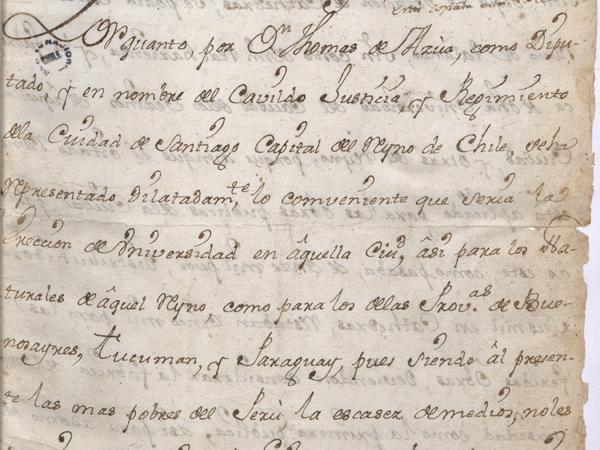 Por quanto, por Dn. Thomas de Azùa, como Dipu-
tado, y en nombre del Cavildo Justicia, y Regimiento
dela Ciudad de Santiago Capital del Reyno de Chile, seha
Representado Dilatadamte. lo comveniente que seria la
Ereccion de Vniversidad en âquella Ciud, âsi para los Na-
turales de âquel Reyno como para los delas Provas. de Bue-
nosayres, Tucuman, y Paraguay, pues siendo âl presen-
te las mas pobres del Perù la escasez demedios, noles